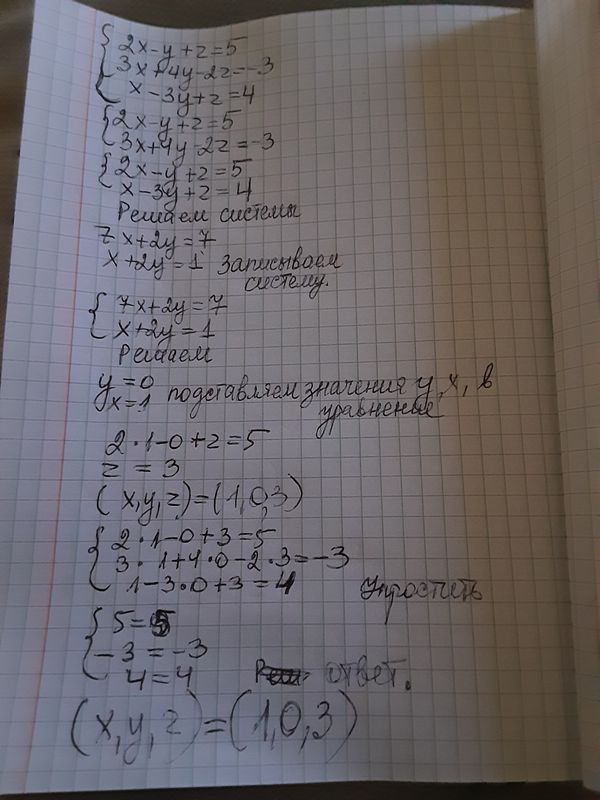 2x-y+z=5
3x+4y-2z=-3
x-3y+z=4
2x-y+z=5
3x+4y-2z=-3
2x-y+z=5
x-3y+z=4
Решаем системы
7x+2y=7
x+2y=1 Записываем
систему.
7x+2y=7
x+2y=1
Решаем
y=0
x=1 подставляем значения y, x, в
уравнение
2·1-0+z=5
z=3
(x,y,z)=(1,0,3)
2·1-0+3=5
3·1+4·0-2·3=-3
1-3·0+3=4 Упростить
5=5
-3=-3
4=4 ответ.
(x,y,z)=(1,0,3)